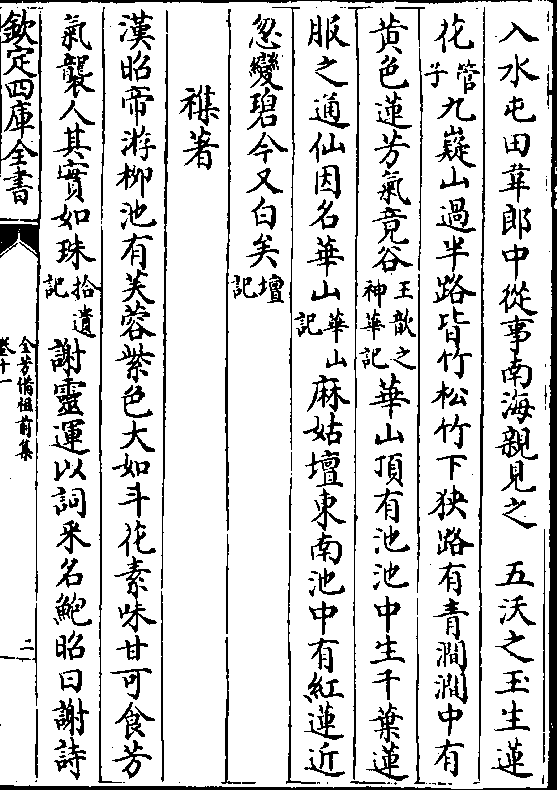 入水屯田韋郎中從事南海親見之　五沃之玉生蓮
花管子九嶷山過半路皆竹松竹下狹路有青澗澗中有
黄色蓮芳氣竟谷王歆之神華記華山頂有池池中生千葉蓮
服之通仙因名華山華山記麻姑壇東南池中有紅蓮近
忽變碧今又白矣壇記
襍著
漢昭帝游柳池有芙蓉紫色大如斗花素味甘可食芳
氣襲人其實如珠拾遺記謝靈運以詞采名鮑昭曰謝詩
欽定四庫全書
全芳備祖前集
卷十一
二